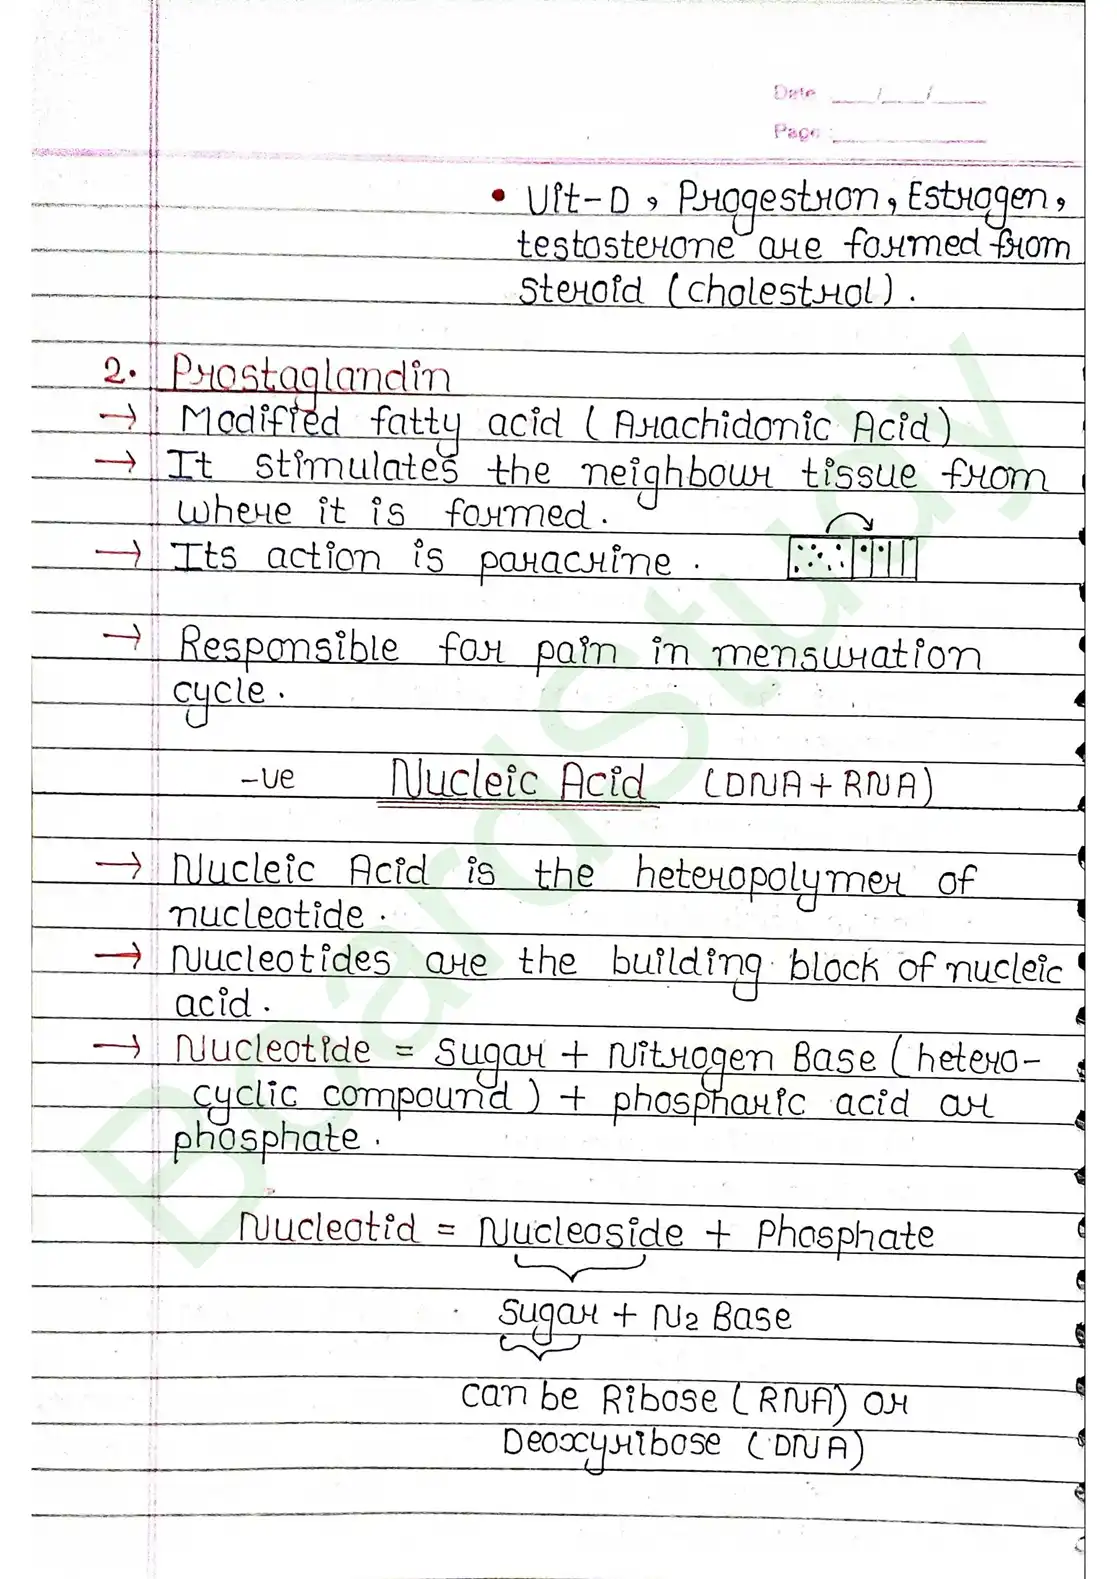 Date ___/___/___
Page :
• Vit-D, Progestron, Estrogen,
testosterone are formed from
Steroid (cholestrol).
2. Prostaglandin
→ Modified fatty acid (Arachidonic Acid)
→ It stimulates the neighbour tissue from
where it is formed.
→ Its action is paracrine.
→ Responsible for pain in mensuration
cycle.
-ve Nucleic Acid (DNA + RNA)
→ Nucleic Acid is the heteropolymer of
nucleotide.
→ Nucleotides are the building block of nucleic
acid.
→ Nucleotide = Sugar + Nitrogen Base (hetero-
cyclic compound) + phosphoric acid or
phosphate.
Nucleotid = Nucleoside + Phosphate
Sugar + N2 Base
can be Ribose (RNA) or
Deoxyribose (DNA)
BoardStudy